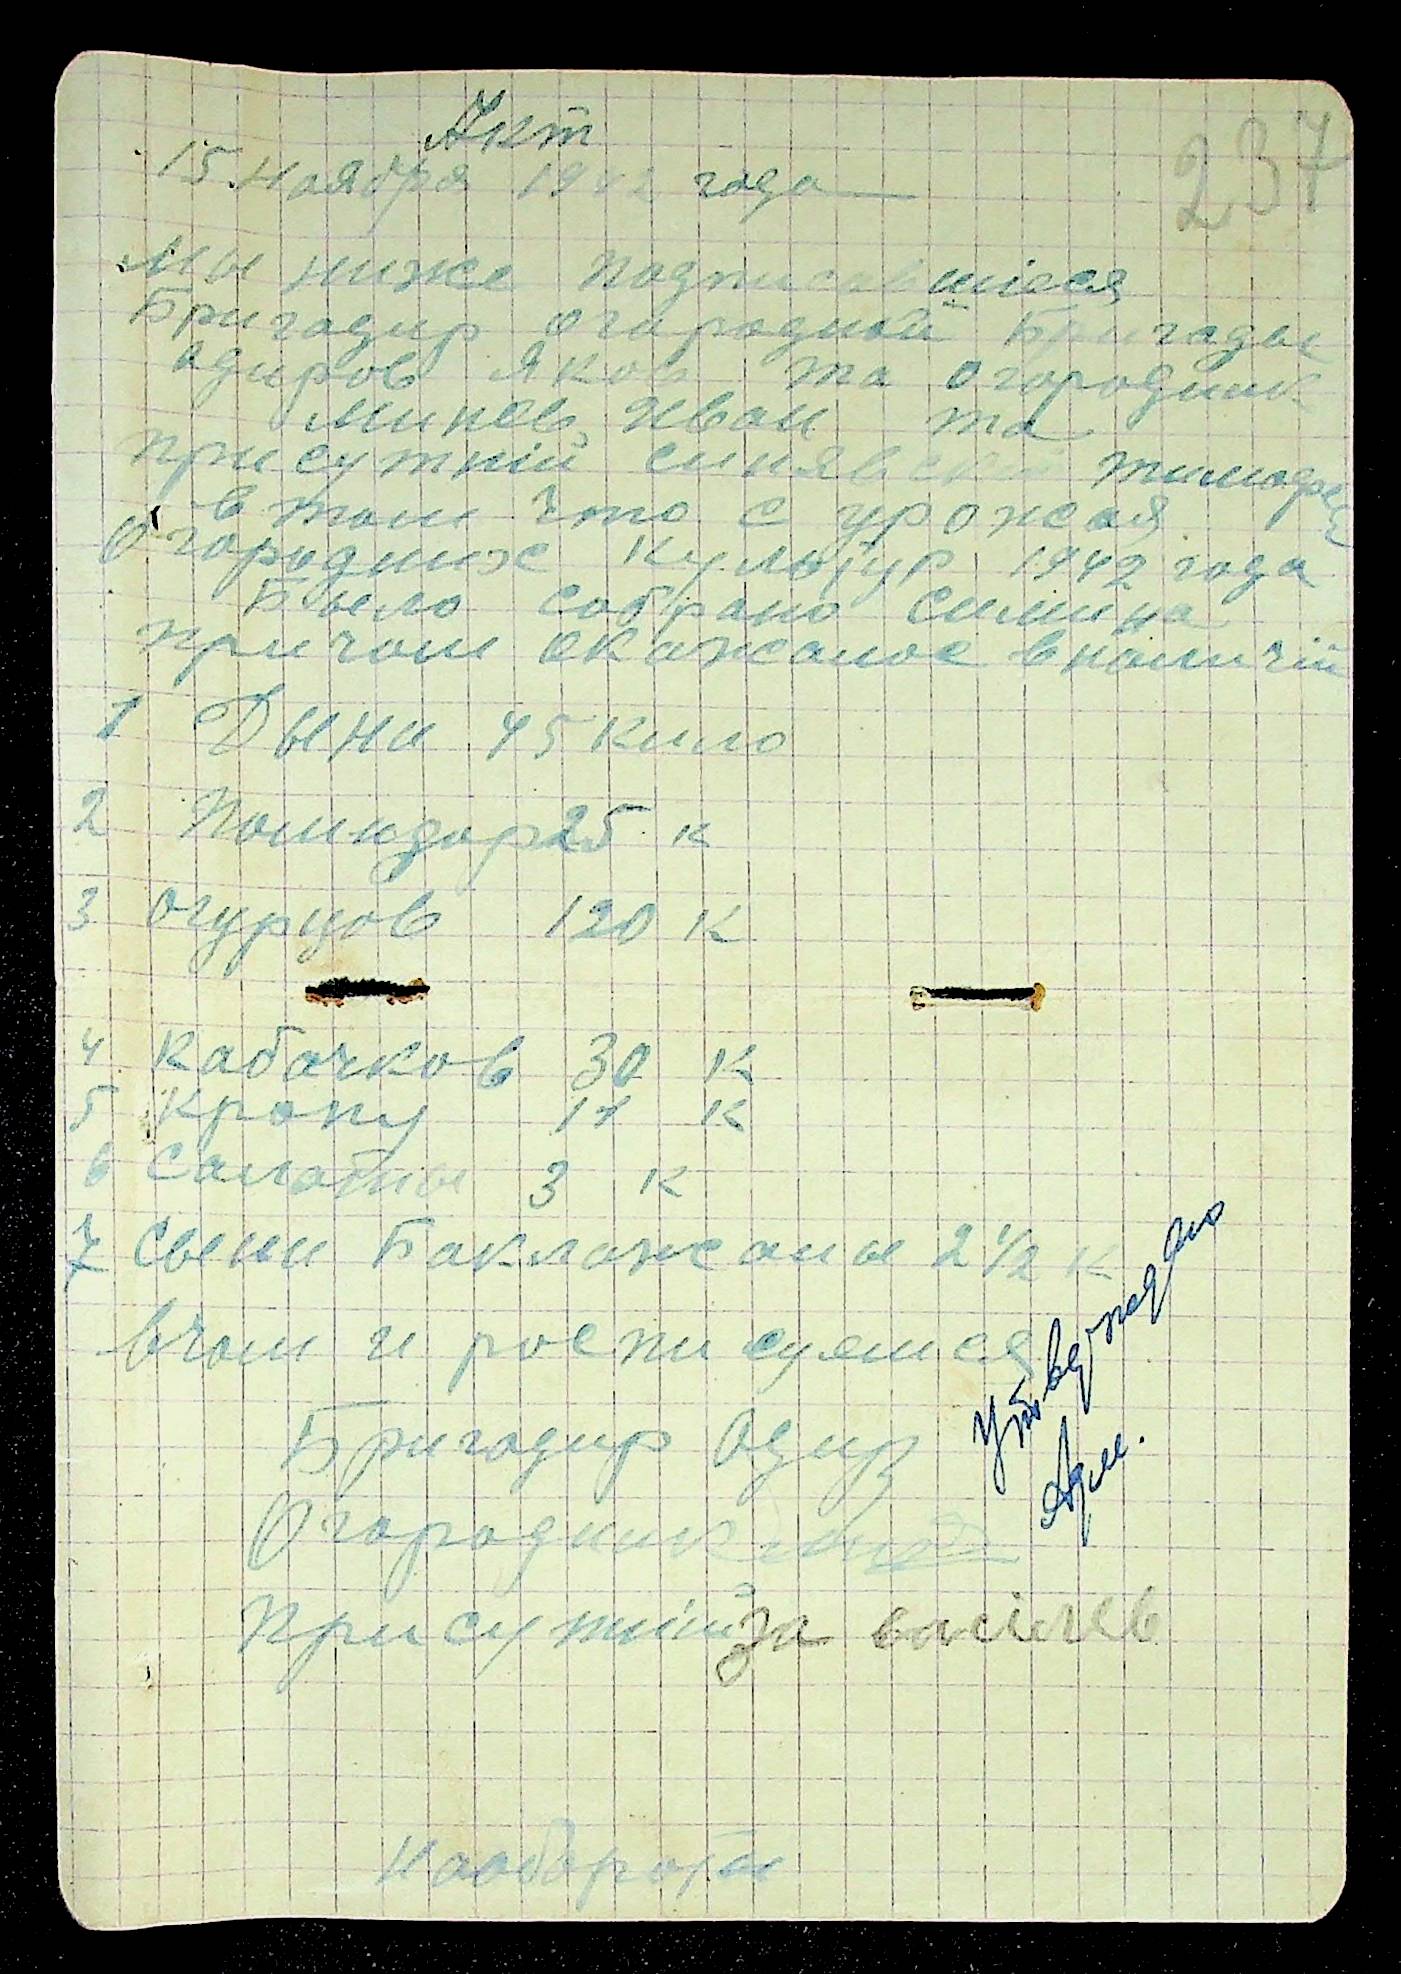 237
Акт
15 ноября 1942 года
Мы ниже подписавшиеся
Бригадир огородной Бригады
Одиров Яков та огородник
Минев Иван та
присутній синявский тимофей
в том что с урожая
огородних культур 1942 года
Было собрано симина
причом окажалос вналичій
1 Дыни 45 кило
2 Помидор 25 к
3 огурцов 120 к
4 кабачков 30 к
5 кропу 11 к
6 салаты 3 к
7 сыни Баклажаны 2 1/2 к
вчом и росписуемся
Утверпедляю
Бригадир Одир
Огородник
Присутній за васілев
Наобороти